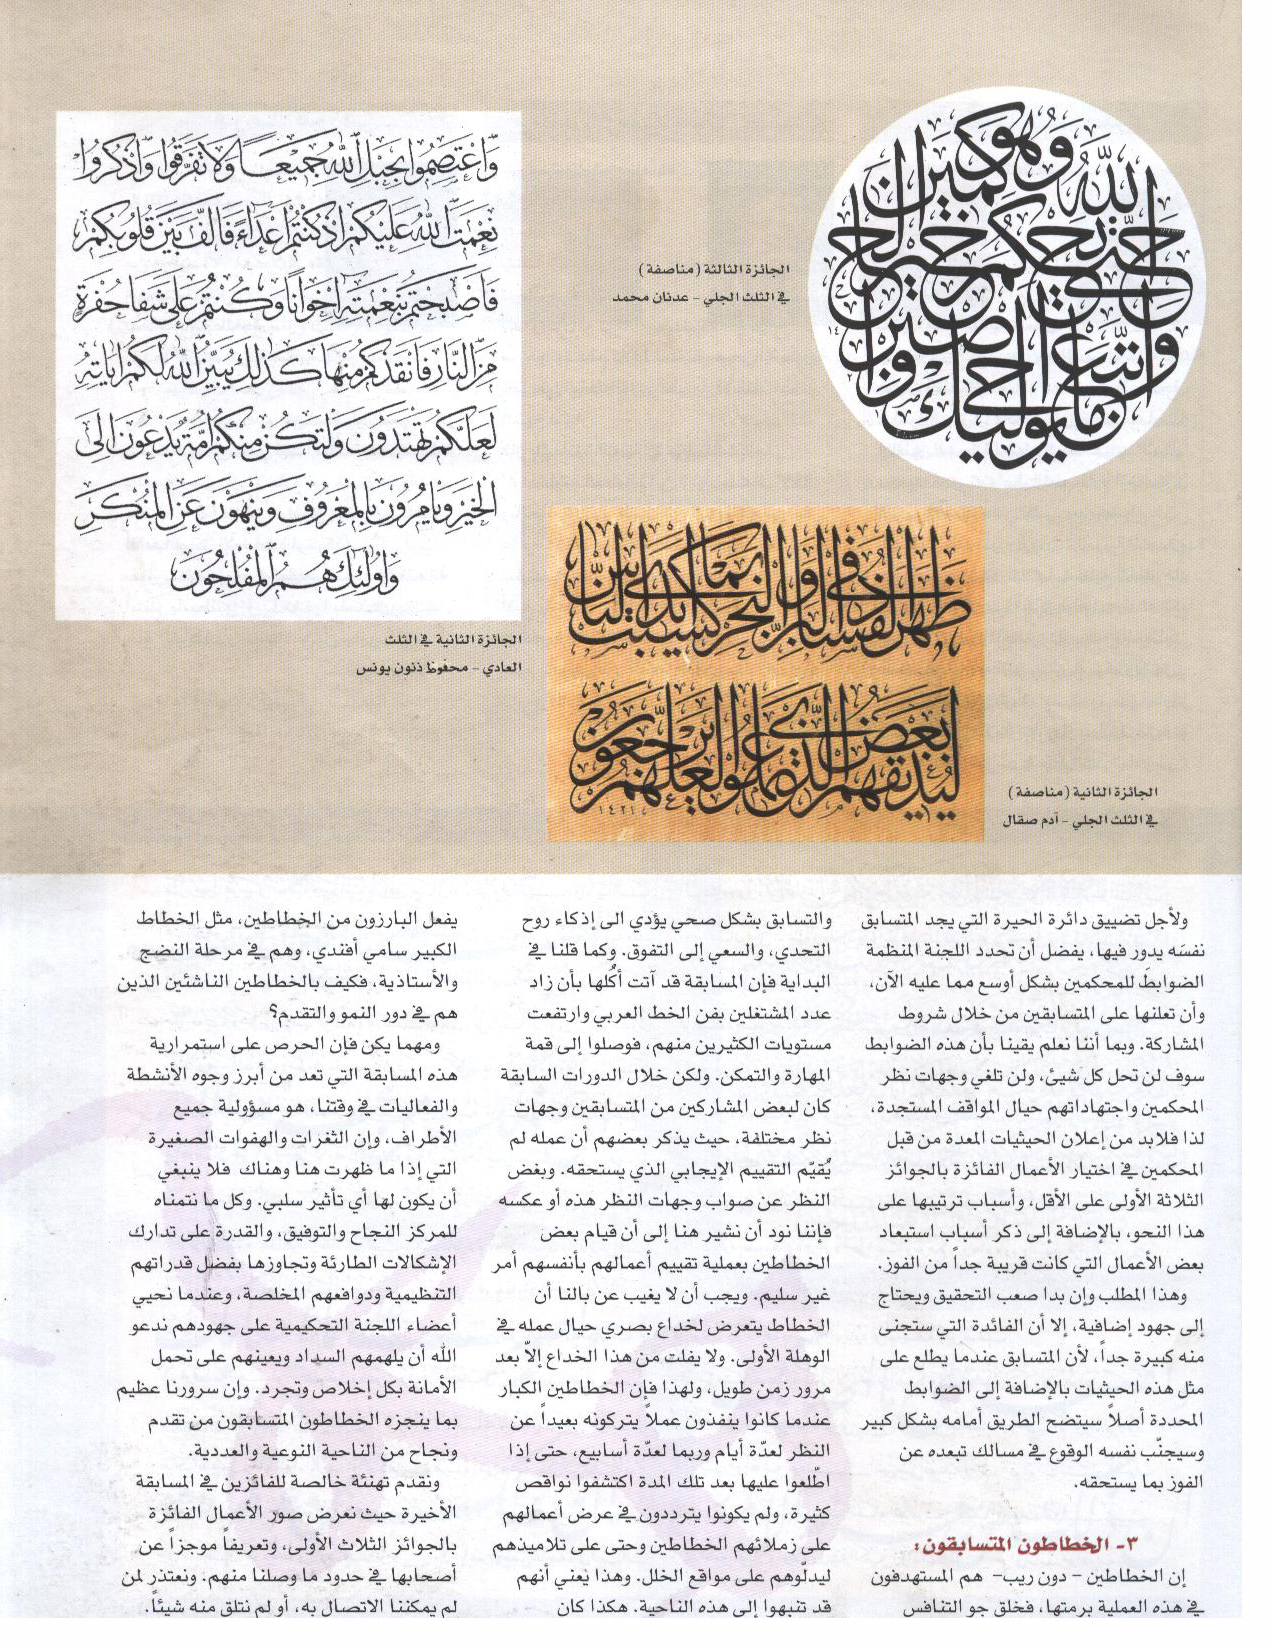 واتبع ما يوحى إليك واصبر حتى يحكم الله وهو خير الحاكمين
الجائزة الثالثة (مناصفة)
في الثلث الجلي - عدنان محمد
وَاعْتَصِمُوا بِحَبْلِ اللهِ جَمِيعًا وَلَا تَفَرَّقُوا وَاذْكُرُوا
نِعْمَتَ اللهِ عَلَيْكُمْ اِذْ كُنْتُمْ اَعْدَاءً فَاَلَّفَ بَيْنَ قُلُوبِكُمْ
فَاَصْبَحْتُمْ بِنِعْمَتِهِ اِخْوَانًا وَكُنْتُمْ عَلَى شَفَا حُفْرَةٍ
مِنَ النَّارِ فَاَنْقَذَكُمْ مِنْهَا كَذَلِكَ يُبَيِّنُ اللهُ لَكُمْ اٰيَاتِهِ
لَعَلَّكُمْ تَهْتَدُونَ وَلْتَكُنْ مِنْكُمْ اُمَّةٌ يَدْعُونَ اِلَى
الْخَيْرِ وَيَاْمُرُونَ بِالْمَعْرُوفِ وَيَنْهَوْنَ عَنِ الْمُنْكَرِ
وَاُولٰئِكَ هُمُ الْمُفْلِحُونَ
الجائزة الثانية في الثلث
العادي - محفوظ ذنون يونس
ظهر الفساد في البر والبحر بما كسبت ايدي الناس
ليذيقهم بعض الذي عملوا لعلهم يرجعون
١٤٢١
الجائزة الثانية (مناصفة)
في الثلث الجلي - آدم صقال
ولأجل تضييق دائرة الحيرة التي يجد المتسابق
نفسَه يدور فيها، يفضل أن تحدد اللجنة المنظمة
الضوابطَ للمحكمين بشكل أوسع مما عليه الآن،
وأن تعلنها على المتسابقين من خلال شروط
المشاركة. وبما أننا نعلم يقينا بأن هذه الضوابط
سوف لن تحل كل شيئ، ولن تلغي وجهات نظر
المحكمين واجتهاداتهم حيال المواقف المستجدة،
لذا فلابد من إعلان الحيثيات المعدة من قبل
المحكمين في اختيار الأعمال الفائزة بالجوائز
الثلاثة الأولى على الأقل، وأسباب ترتيبها على
هذا النحو، بالإضافة إلى ذكر أسباب استبعاد
بعض الأعمال التي كانت قريبة جداً من الفوز.
وهذا المطلب وإن بدا صعب التحقيق ويحتاج
إلى جهود إضافية، إلا أن الفائدة التي ستجنى
منه كبيرة جداً، لأن المتسابق عندما يطلع على
مثل هذه الحيثيات بالإضافة إلى الضوابط
المحددة أصلاً سيتضح الطريق أمامه بشكل كبير
وسيجنّب نفسه الوقوع في مسالك تبعده عن
الفوز بما يستحقه.
٣- الخطاطون المتسابقون:
إن الخطاطين - دون ريب- هم المستهدفون
في هذه العملية برمتها، فخلق جو التنافس
والتسابق بشكل صحي يؤدي الى إذكاء روح
التحدي، والسعي إلى التفوق. وكما قلنا في
البداية فإن المسابقة قد آتت أُكُلها بأن زاد
عدد المشتغلين بفن الخط العربي وارتفعت
مستويات الكثيرين منهم، فوصلوا إلى قمة
المهارة والتمكن. ولكن خلال الدورات السابقة
كان لبعض المشاركين من المتسابقين وجهات
نظر مختلفة، حيث يذكر بعضهم أن عمله لم
يُقيّم التقييم الإيجابي الذي يستحقه. وبغض
النظر عن صواب وجهات النظر هذه أو عكسه
فإننا نود أن نشير هنا إلى أن قيام بعض
الخطاطين بعملية تقييم أعمالهم بأنفسهم أمر
غير سليم. ويجب أن لا يغيب عن بالنا أن
الخطاط يتعرض لخداع بصري حيال عمله في
الوهلة الأولى. ولا يفلت من هذا الخداع إلاّ بعد
مرور زمن طويل، ولهذا فإن الخطاطين الكبار
عندما كانوا ينفذون عملاً يتركونه بعيداً عن
النظر لعدّة أيام وربما لعدّة أسابيع، حتى إذا
اطّلعوا عليها بعد تلك المدة اكتشفوا نواقص
كثيرة، ولم يكونوا يترددون في عرض أعمالهم
على زملائهم الخطاطين وحتى على تلاميذهم
ليدلّوهم على مواقع الخلل. وهذا يَعني أنهم
قد تنبهوا إلى هذه الناحية. هكذا كان
يفعل البارزون من الخطاطين، مثل الخطاط
الكبير سامي أفندي، وهم في مرحلة النضج
والأستاذية، فكيف بالخطاطين الناشئين الذين
هم في دور النمو والتقدم؟
ومهما يكن فإن الحرص على استمرارية
هذه المسابقة التي تعد من أبرز وجوه الأنشطة
والفعاليات في وقتنا، هو مسؤولية جميع
الأطراف، وإن الثغرات والهفوات الصغيرة
التي إذا ما ظهرت هنا وهناك فلا ينبغي
أن يكون لها أي تأثير سلبي. وكل ما نتمناه
للمركز النجاح والتوفيق، والقدرة على تدارك
الإشكالات الطارئة وتجاوزها بفضل قدراتهم
التنظيمية ودوافعهم المخلصة، وعندما نحيي
أعضاء اللجنة التحكيمية على جهودهم ندعو
الله أن يلهمهم السداد ويعينهم على تحمل
الأمانة بكل إخلاص وتجرد. وإن سرورنا عظيم
بما ينجزه الخطاطون المتسابقون من تقدم
ونجاح من الناحية النوعية والعددية.
ونقدم تهنئة خالصة للفائزين في المسابقة
الأخيرة حيث نعرض صور الأعمال الفائزة
بالجوائز الثلاث الأولى، وتعريفاً موجزاً عن
أصحابها في حدود ما وصلنا منهم. ونعتذر لمن
لم يمكننا الاتصال به، أو لم نتلق منه شيئاً.